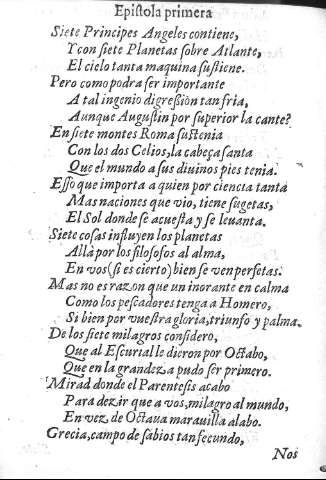 Epistola primera
Siete Principes Angeles contiene,
Y con siete Planetas sobre Atlante,
El cielo tanta maquina sustiene.
Pero como podra ser importante
A tal ingenio digression tan fria,
Aunque Augustin por superior la cante?
En siete montes Roma sustenia
Con los dos Celios, la cabeça santa
Que el mundo a sus diuinos pies tenia.
Esso que importa a quien por ciencia tanta
Mas naciones que vio, tiene sugetas,
El Sol donde se acuesta y se leuanta.
Siete cosas influyen los planetas
Alla por los filosofos al alma,
En vos (si es cierto) bien se ven perfetas.
Mas no es razon que un inorante en calma
Como los pescadores tenga a Homero,
Si bien por vuestra gloria, triunfo y palma.
De los siete milagros considero,
Que al Escurial le dieron por Octabo,
Que en la grandeza pudo ser primero.
Mirad donde el Parentesis acabo
Para dezir que a vos, milagro al mundo,
En vez de Octaua marauilla alabo.
Grecia, campo de sabios tan fecundo,
Nos